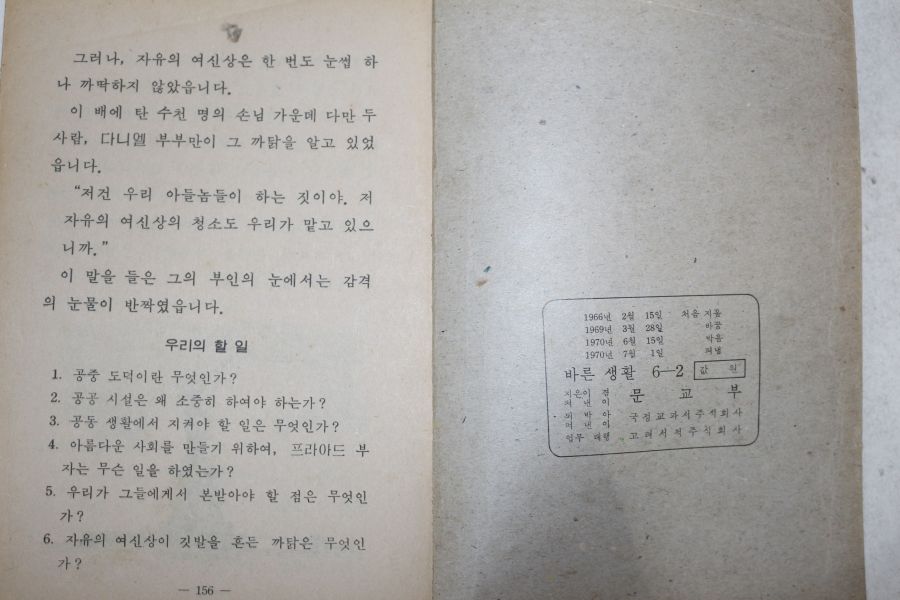 그러나, 자유의 여신상은 한 번도 눈썹 하
나 까딱하지 않았읍니다.
이 배에 탄 수천 명의 손님 가운데 다만 두
사람, 다니엘 부부만이 그 까닭을 알고 있었
읍니다.
“저건 우리 아들놈들이 하는 짓이야. 저
자유의 여신상의 청소도 우리가 맡고 있으
니까.”
이 말을 들은 그의 부인의 눈에서는 감격
의 눈물이 반짝였읍니다.
우리의 할 일
1. 공중 도덕이란 무엇인가?
2. 공공 시설은 왜 소중히 하여야 하는가?
3. 공동 생활에서 지켜야 할 일은 무엇인가?
4. 아름다운 사회를 만들기 위하여, 프라야드 부
자는 무슨 일을 하였는가?
5. 우리가 그들에게서 본받아야 할 점은 무엇인
가?
6. 자유의 여신상이 깃발을 흔든 까닭은 무엇인
가?
— 156 —
1966년 2월 15일 처음 지음
1969년 3월 28일 바꿈
1970년 6월 15일 박음
1970년 7월 1일 펴냄
바른 생활 6—2 값 원
지은이 겸
펴낸이 문교부
박아
펴낸이 국정교과서주식회사
업무 대행 고려서적주식회사